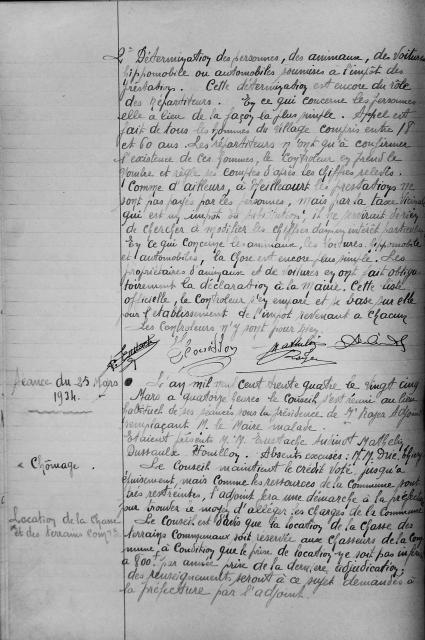 2° Détermination des personnes, des animaux, des voitures
hippomobile ou automobiles soumises à l'impôt des
prestation. Cette détermination est encore du rôle
des répartiteurs. En ce qui concerne les personnes
elle a lieu de la façon la plus simple. Appel est
fait de tous les hommes du village compris entre 18
et 60 ans. Les répartiteurs n'ont qu'à confirmer
l'existence de ces hommes, le Controleur en prend le
nombre et règle ses comptes d'après les chiffres relevés.
Comme d'ailleurs, à les prestations ne
sont pas payés par les personnes, mais par la taxe
qui est un impôt de il ne servirait de rien
de chercher à modifier les chiffres d'aucun intérêt particulier
En ce qui concerne les animaux, les voitures hippomobile
et automobiles, la chose est encore plus simple. Les
propriétaires d'animaux et de voitures en ont fait obliga-
toirement la déclaration à la Mairie. Cette liste
officielle, le Controleur s'en empare et se base sur elle
pour l'établissement de l'impôt revenant à chacun
Les Controleurs n'y sont pour rien.
Séance du 25 Mars
1934.
L'an mil neuf cent trente quatre le vingt cinq
Mars à quatorze heures le Conseil s'est réuni au lieu
habituel de ses séances sous la présidence de Mr Roger Adjoint
remplaçant M. le Maire malade.
Etaient présents M.M. Eustache Mathelin
Dussaulx Houillon. Absents excusés: M.M.
Chômage.
Le Conseil maintient le crédit voté, jusqu'à
épuisement, mais comme les ressources de la Commune sont
très restreintes, l'adjoint fera une démarche à la préfecture
pour trouver le moyen d'alléger les charges de la Commune
Location de la Chasse
et des terrains Comx
Le Conseil est d'avis que la location de la Chasse des
terrains Communaux soit réservée aux chasseurs de la Com
mune, à condition que le prix de location ne soit pas inférieur
à 800f par année prix de la dernière adjudication;
des renseignements seront à ce sujet demandés à
la préfecture par l'adjoint.